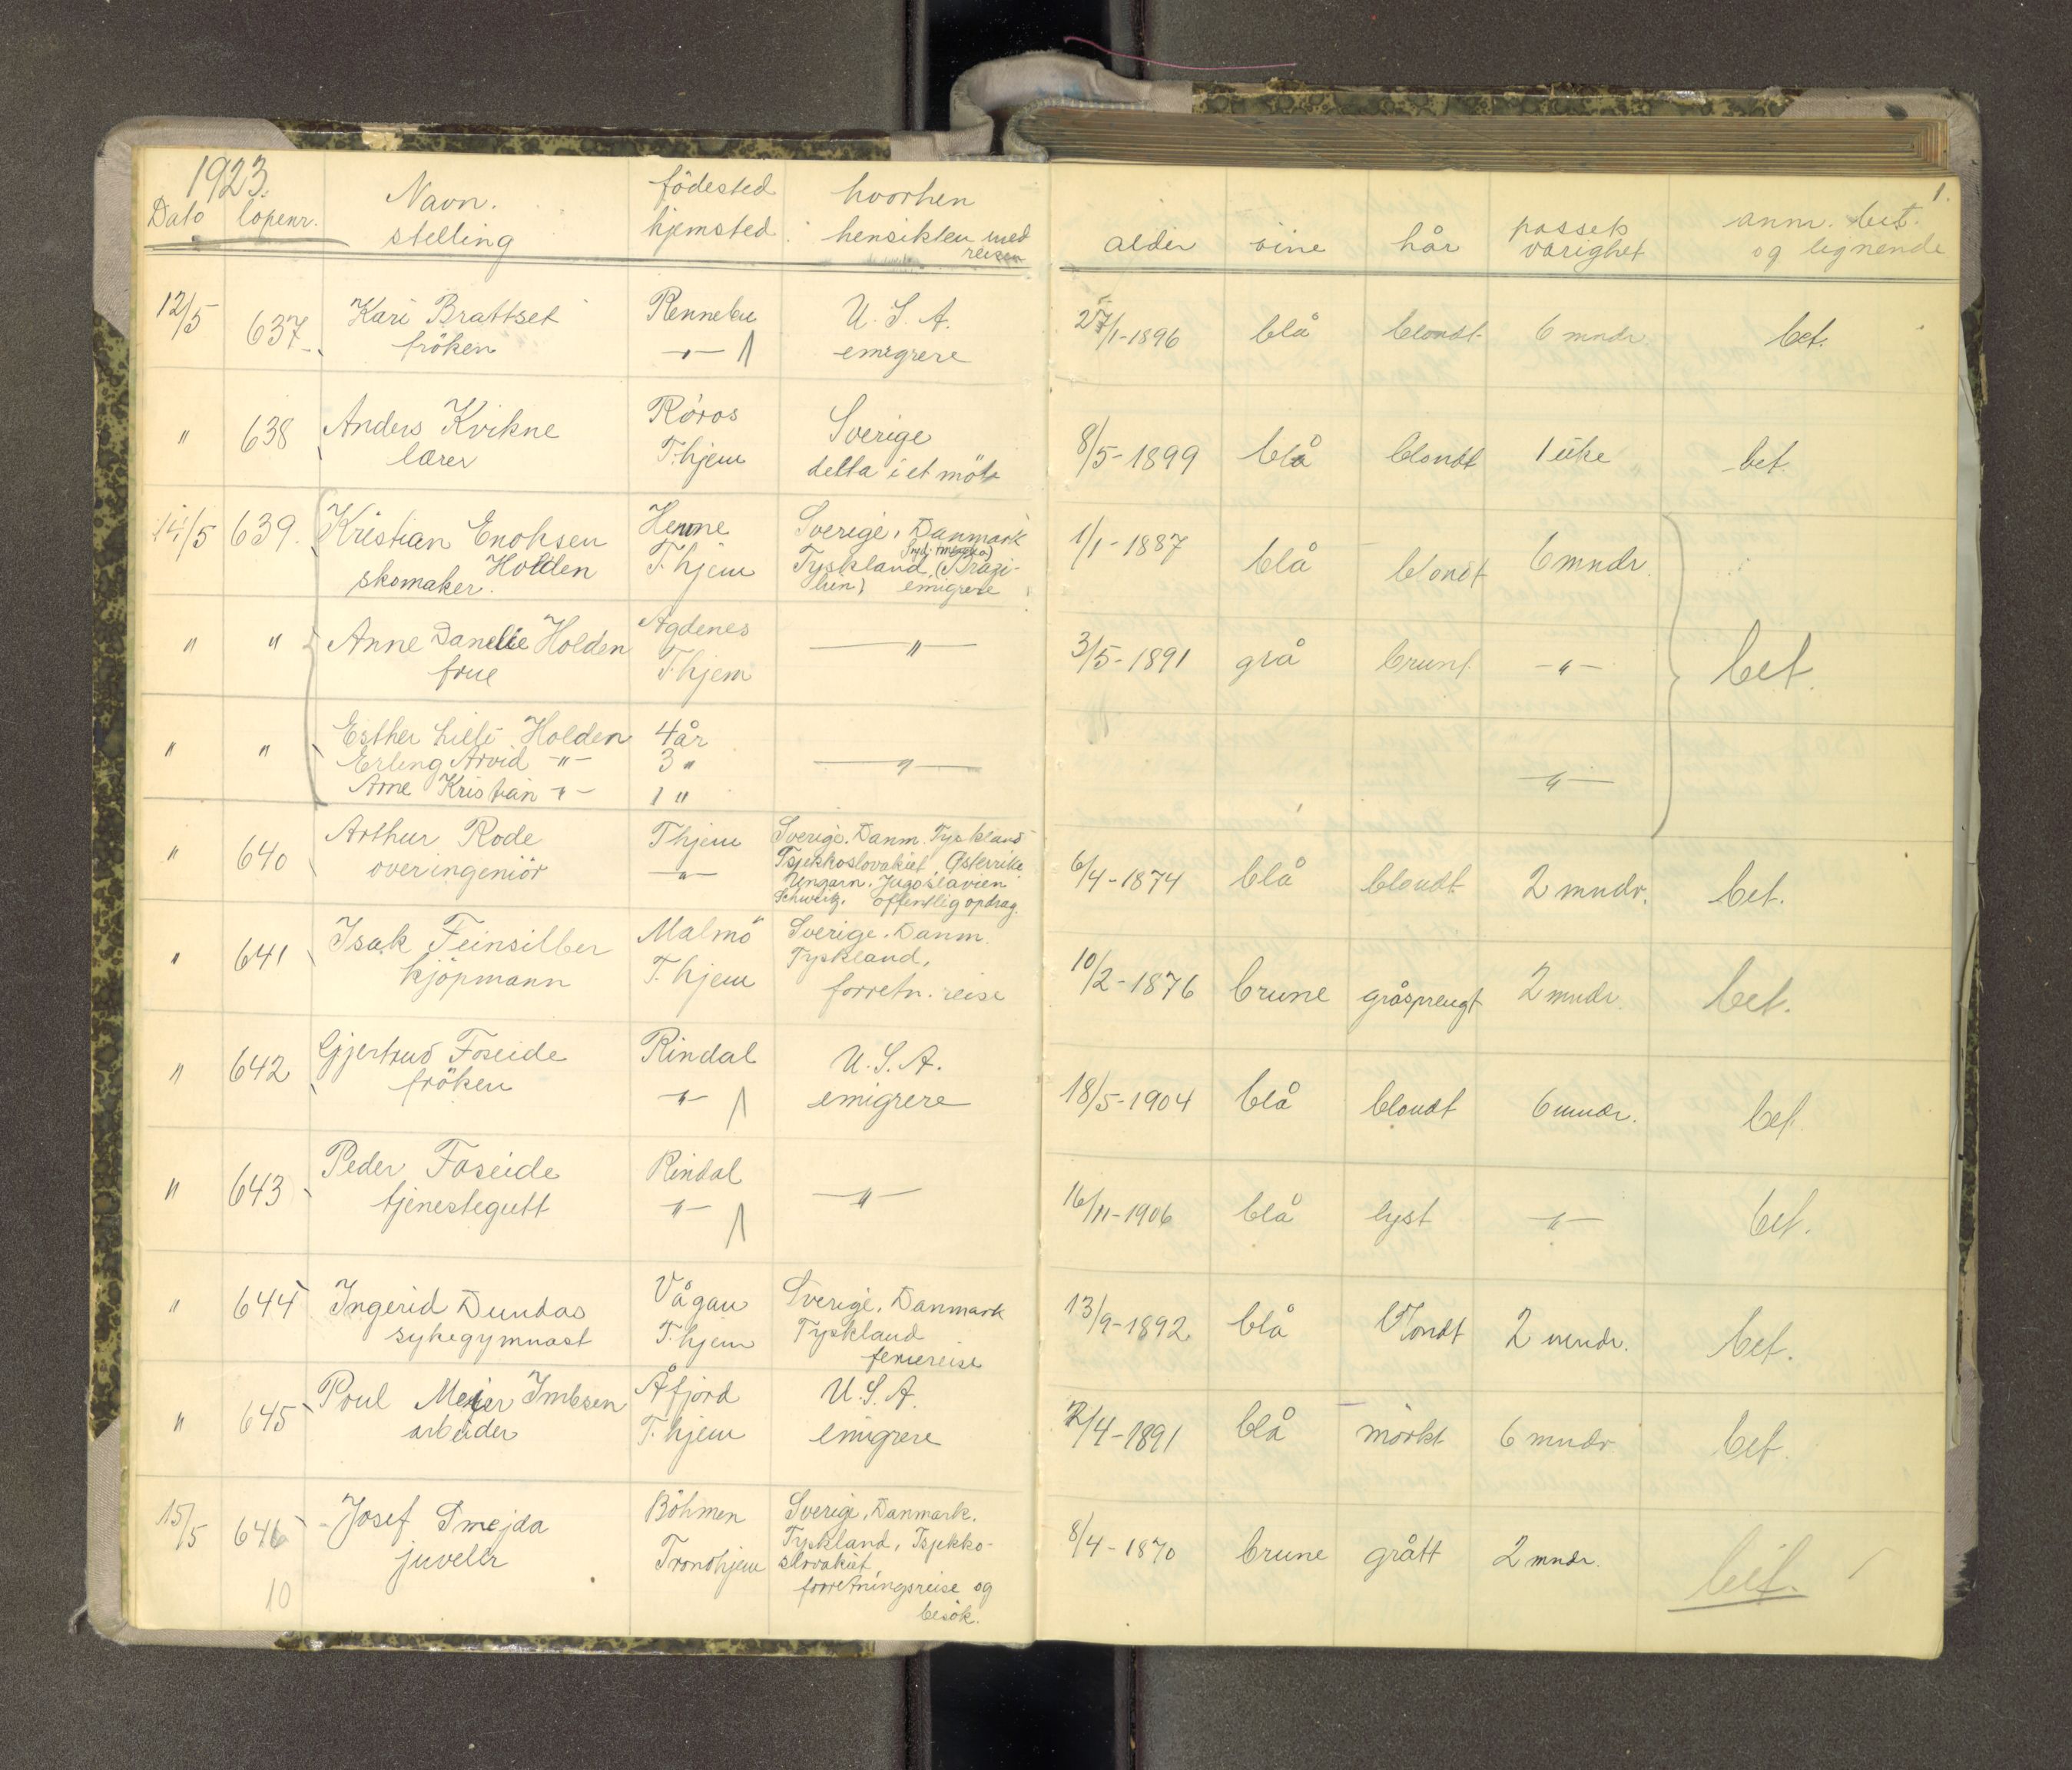 1923.
Dato löpenr. Navn. stelling födested hjemsted hvorhen hensikten med reisen alder öine hår passets varighet anm. bet. og lignende
1.
12/5 637 Kari Brattset Rennebu U.S.A. 1-1896 blå blondt 6 mndr bet.
fröken -"- emigrere
" 638 Anders Kvikne Röros Sverige 8/5-1899 blå blondt 1 uke bet.
lærer T.hjem delta i et möte
14/5 639. Kristian Enoksen Hemne Sverige, Danmark 1/1-1887 blå blondt 6 mndr.
Holden T.hjem Tyskland, (Brazi-
skomaker. lien) emigrere
" " Anne Danelie Holden Agdenes -"- 3/5-1891 grå brunt -"- bet.
frue T.hjem
" " Esther Lilli Holden 4 år
Erling Arvid -"- 3 " -"-
Arne Kristian -"- 1 " -"-
" 640 Arthur Rode T.hjem Sverige. Danm. Tyskland 6/4-1874 blå blondt 2 mndr. bet.
overingeniör -"- Tsjekkoslovakiet, Østerrike
Ungarn. Jugoslavien
Schweitz. offentlig opdrag.
" 641 Isak Feinsilber Malmö Sverige. Danm. 10/2-1876 brune gråsprengt 2 mndr. bet.
kjöpmann T.hjem Tyskland,
forretn. reise
" 642 Gjertrud Foseide Rindal U.S.A. 18/5-1904 blå blondt 6 mndr. bet.
fröken -"- emigrere
" 643 Peder Foseide Rindal -"- 16/11-1906 blå lyst -"- bet.
tjenestegutt -"-
" 644 Ingerid Dundas Vågan Sverige, Danmark 13/9-1892 blå blondt 2 mndr. bet.
sykegymnast T.hjem Tyskland
feriereise
" 645 Poul Meyer Imbsen Åfjord U.S.A. 2/4-1891 blå mörkt 6 mndr bet.
arbeider T.hjem emigrere
15/5 646 Josef Smejda Böhmen Sverige, Danmark. 8/4-1870 brune grått 2 mndr. bet.
juveler Trondhjem Tyskland, Tsjekko-
slovakiet,
10 forretningsreise og
besök.